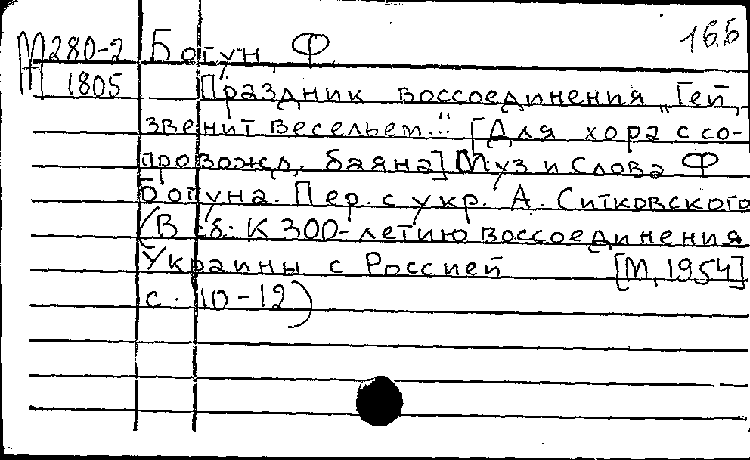 16Б
М280-2 Богун, Ф.
П 1805 Праздник воссоединения „Гей,
звенит весельем..." [Для хора с со-
провожд. баяна] Муз и слова Ф
Богуна. Пер. с укр. А. Ситковского
(В сб: К 300-летию воссоединения
Украины с Россией [М, 1954]
с. 10-12)